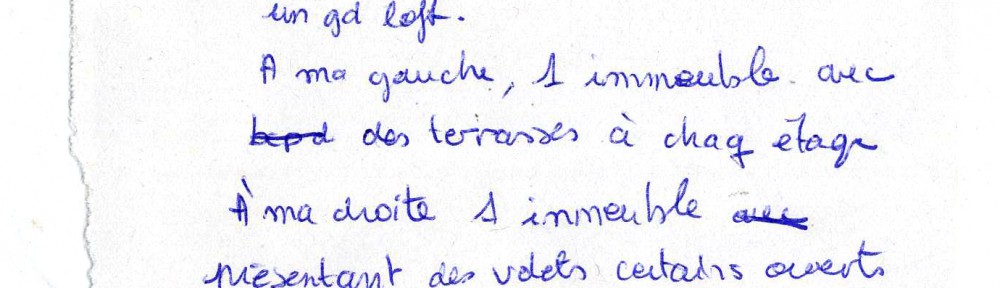 un gd loft.
A ma gauche, 1 immeuble avec
des terrasses à chaq étage
À ma droite 1 immeuble avec
présentant des volets certains ouverts